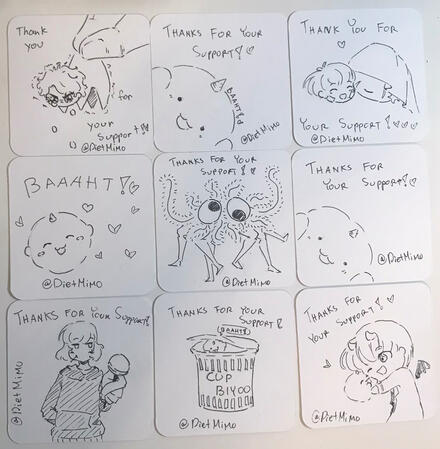 Thank
you
for
your
Support!!
@DietMimo
THANKS FOR YOUR
SUPPORT!♡
BAAHT!
@DietMimo
THANK YOU FOR
♡
YOUR SUPPORT!♡♡♡
@DietMimo
BAAAHT!♡
@DietMimo
THANKS FOR YOUR
SUPPORT!♡
@DietMimo
THANKS FOR
YOUR SUPPORT!♡
@DietMimo
THANKS FOR YOUR SUPPORT!
@DietMimo
THANKS FOR YOUR
SUPPORT!
BAAHT!
CUP
BIYOO
@DietMimo
THANKS FOR
YOUR SUPPORT!♡
@DietMimo